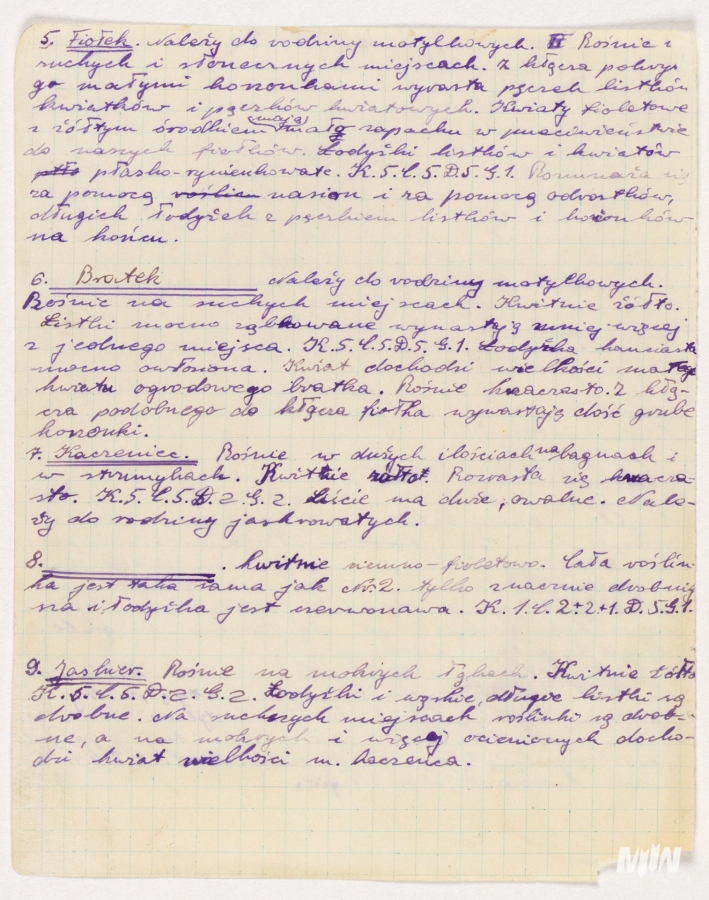 5. Fiołek. Należy do rodziny motylkowych. Rośnie
suchych i słonecznych miejscach. Z kłącza pokryte
go małymi korzonkami wyrasta pęczek listków
kwiatków i pączków kwiatowych. Kwiaty fioletowe
z żółtym środkiem (mają) małą zapachu w przeciwieństwie
do naszych fiołków. Łodyżki listków i kwiatów
płasko-rynienkowate. K.5.C.5.D.5.G.1. Rozmnaża się
za pomocą roślin nasion i za pomocą odrostków,
długich łodyżek z pęczkiem listków i korzonków
na końcu.
6. Bratek Należy do rodziny motylkowych.
Rośnie na suchych miejscach. Kwitnie żółto.
Listki mocno ząbkowane wyrastają mniej więcej
z jednego miejsca. K.5.C.5.D.5.G.1. Łodyżka kanciasta
mocno owłosiona. Kwiat dochodzi wielkości małego
kwiatu ogrodowego bratka. Rośnie krzaczasto. Z kłą-
cza podobnego do kłącza fiołka wyrastają dość grube
korzonki.
7. Kaczeniec. Rośnie w dużych ilościach na bagnach i
w strumykach. Kwitnie żółto. Rozrasta się krzacza-
sto. K.5.C.5.D.2.G.2. Liście ma duże, owalne. Nale-
ży do rodziny jaskrowatych.
8. . Kwitnie ciemno-fioletowo. Cała roślin-
ka jest taka sama jak Nr.2. tylko znacznie drobniej
sza i łodyżka jest czerwonawa. K.1.C.2+2+1.D.5.G.1.
9. Jaskier. Rośnie na mokrych łąkach. Kwitnie żółto
K.5.C.5.D.2 G.2. Łodyżki i wąskie, długie listki są
drobne. Na suchszych miejscach roślinki są drob-
ne, a na mokrych i więcej ocienionych docho-
dzi kwiat wielkości m. kaczeńca.
MWN